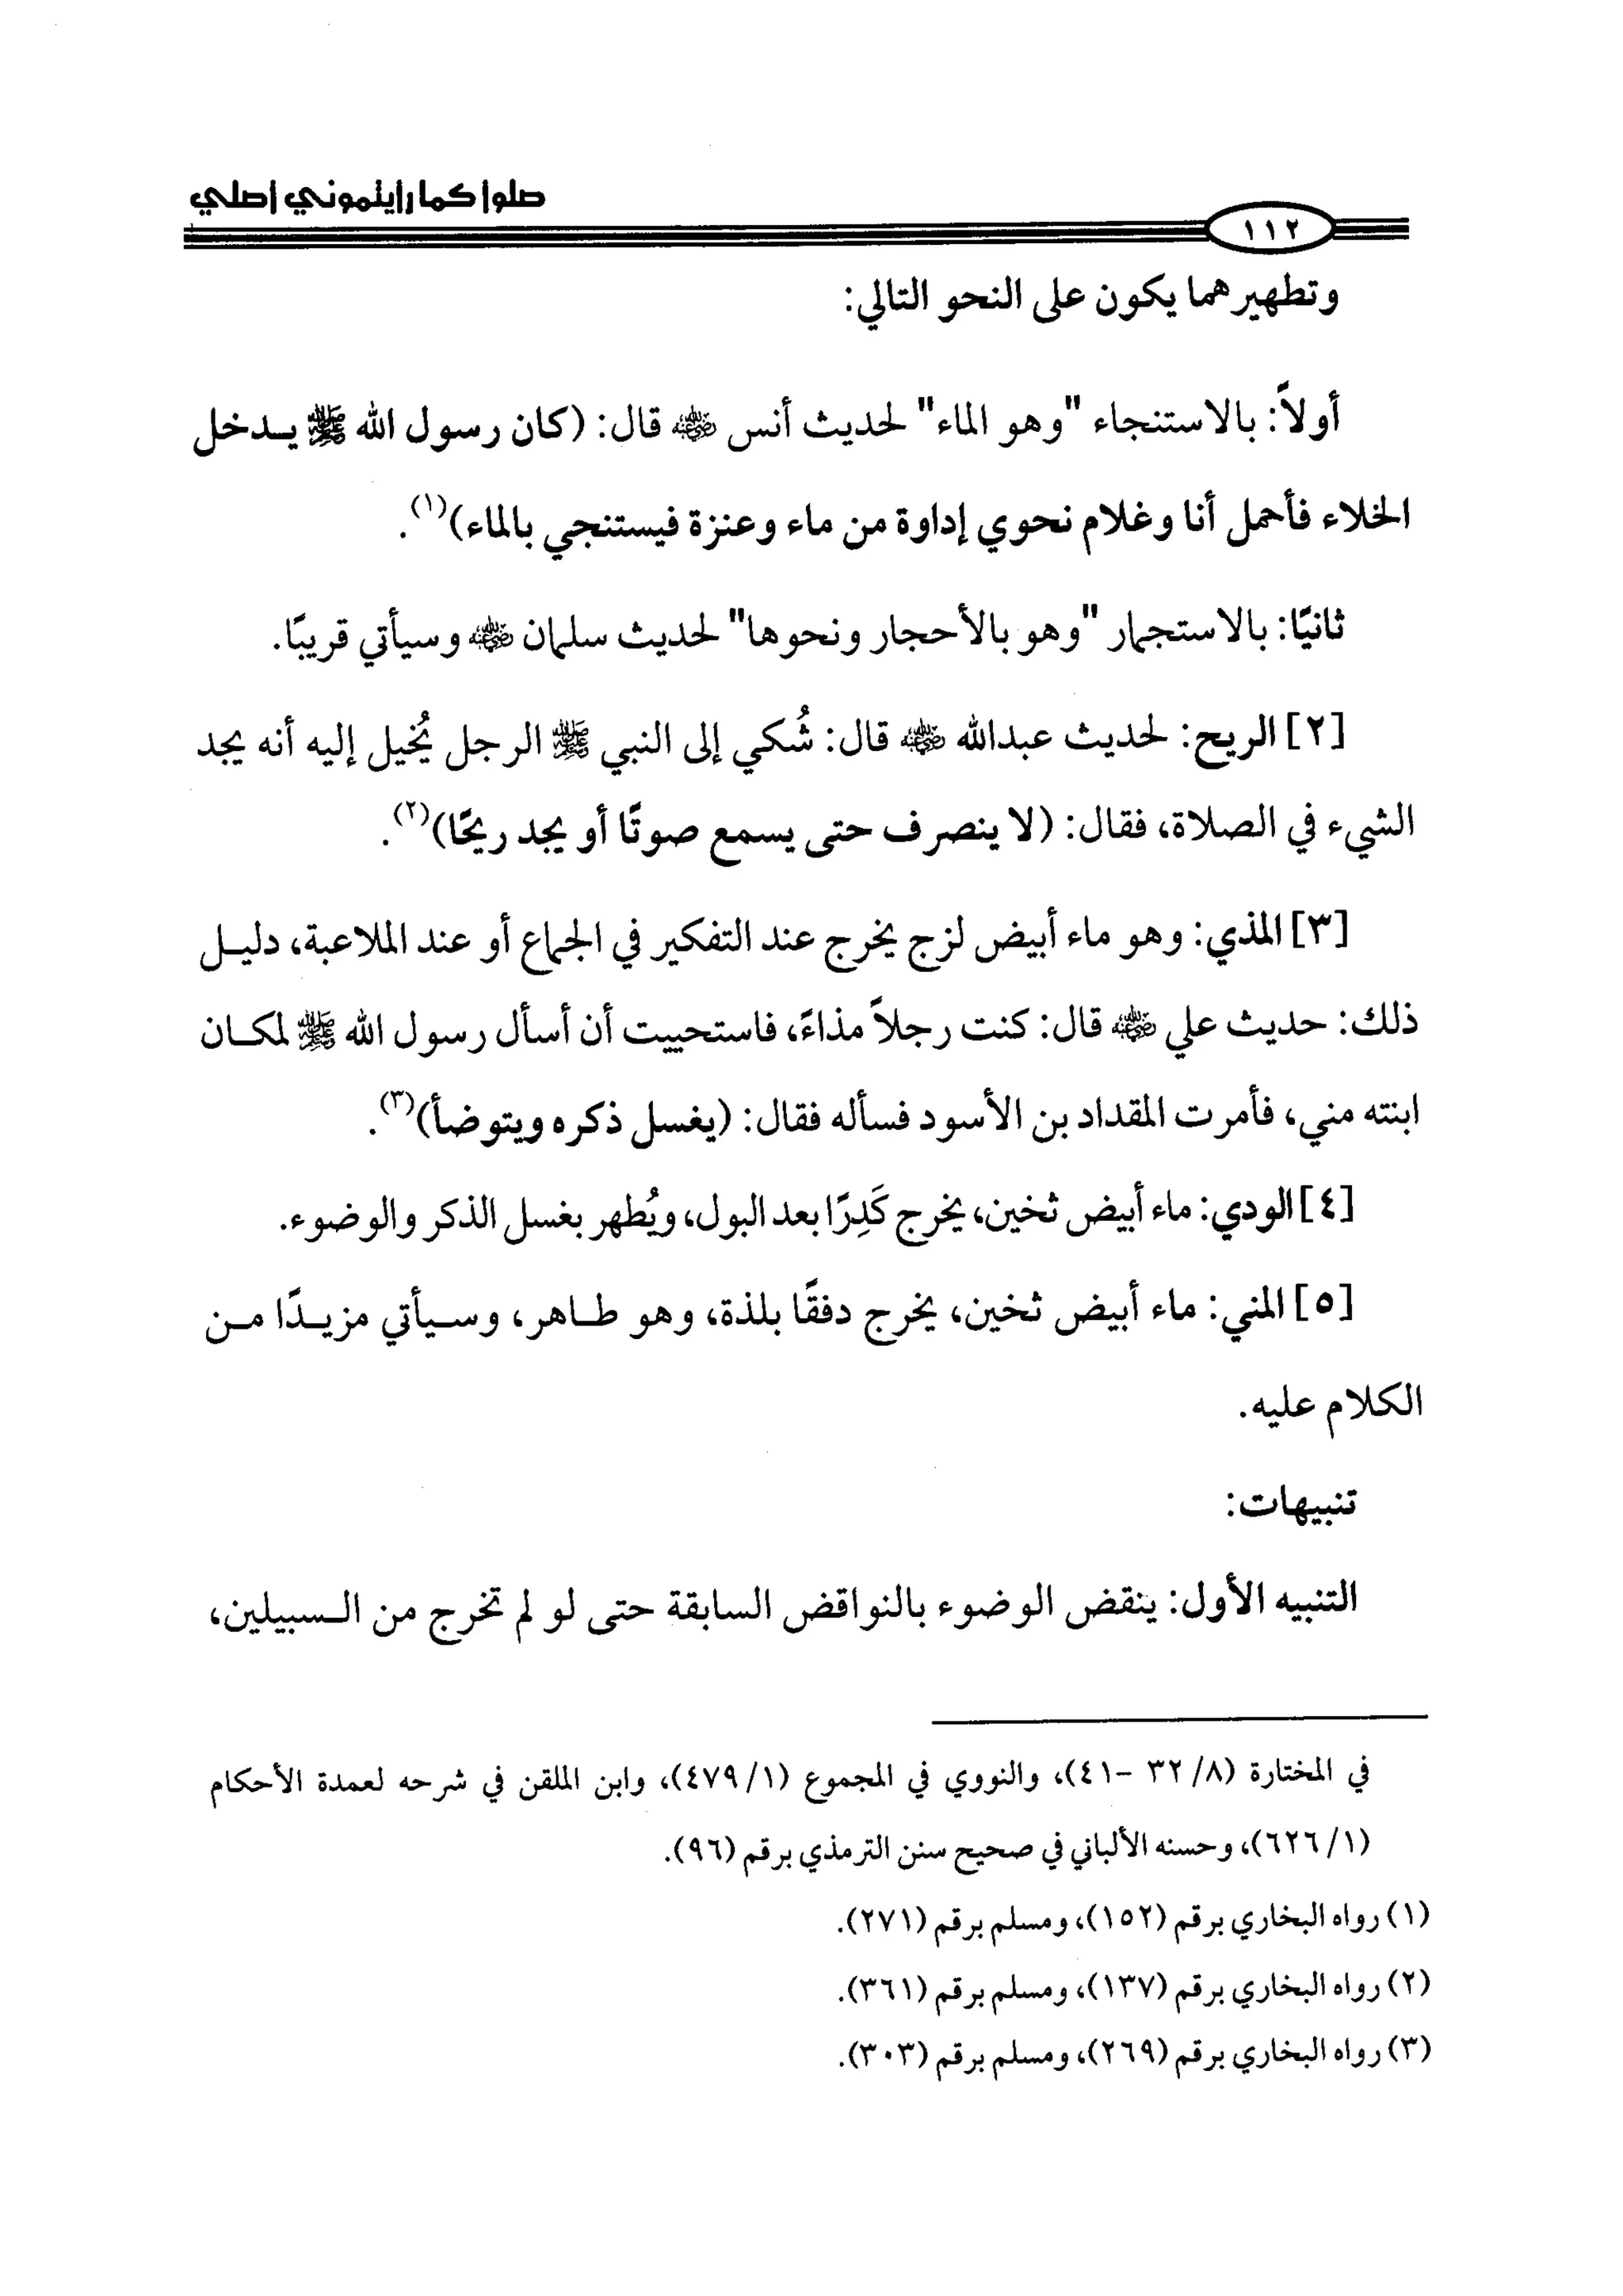 صلوا كما رايتموني اصلي
١١٢
وتطهيرهما يكون على النحو التالي:
أولاً: بالاستنجاء "وهو الماء" لحديث أنس ﵁ قال: (كان رسول الله ﷺ يـدخل
الخلاء فأحمل أنا وغلام نحوي إداوة من ماء وعنزة فيستنجي بالماء)(١).
ثانيًا: بالاستجمار "وهو بالأحجار ونحوها" لحديث سلمان ﵁ وسيأتي قريبًا.
[٢] الريح: لحديث عبدالله ﵁ قال: شُكي إلى النبي ﷺ الرجل يُخيل إليه أنه يجد
الشيء في الصلاة، فقال: (لا ينصرف حتى يسمع صوتًا أو يجد ريحًا)(٢).
[٣] المذي: وهو ماء أبيض لزج يخرج عند التفكير في الجماع أو عند الملاعبة، دليـل
ذلك: حديث علي ﵁ قال: كنت رجلاً مذاءً، فاستحييت أن أسأل رسول الله ﷺ لمكـان
ابنته مني، فأمرت المقداد بن الأسود فسأله فقال: (يغسل ذكره ويتوضأ)(٣).
[٤] الودي: ماء أبيض ثخين، يخرج كَدِرًا بعد البول، ويُطهر بغسل الذكر والوضوء.
[٥] المني: ماء أبيض ثخين، يخرج دفقًا بلذة، وهو طـاهر، وسـيأتي مزيـدًا مـن
الكلام عليه.
تنبيهات:
التنبيه الأول: ينقض الوضوء بالنواقض السابقة حتى لو لم تخرج من الـسبيلين،
في المختارة (٨/ ٣٢ -٤١)، والنووي في المجموع (١/ ٤٧٩)، وابن الملقن في شرحه لعمدة الأحكام
(١/ ٦٢٦)، وحسنه الألباني في صحيح سنن الترمذي برقم (٩٦).
(١) رواه البخاري برقم (١٥٢)، ومسلم برقم (٢٧١).
(٢) رواه البخاري برقم (١٣٧)، ومسلم برقم (٣٦١).
(٣) رواه البخاري برقم (٢٦٩)، ومسلم برقم (٣٠٣).